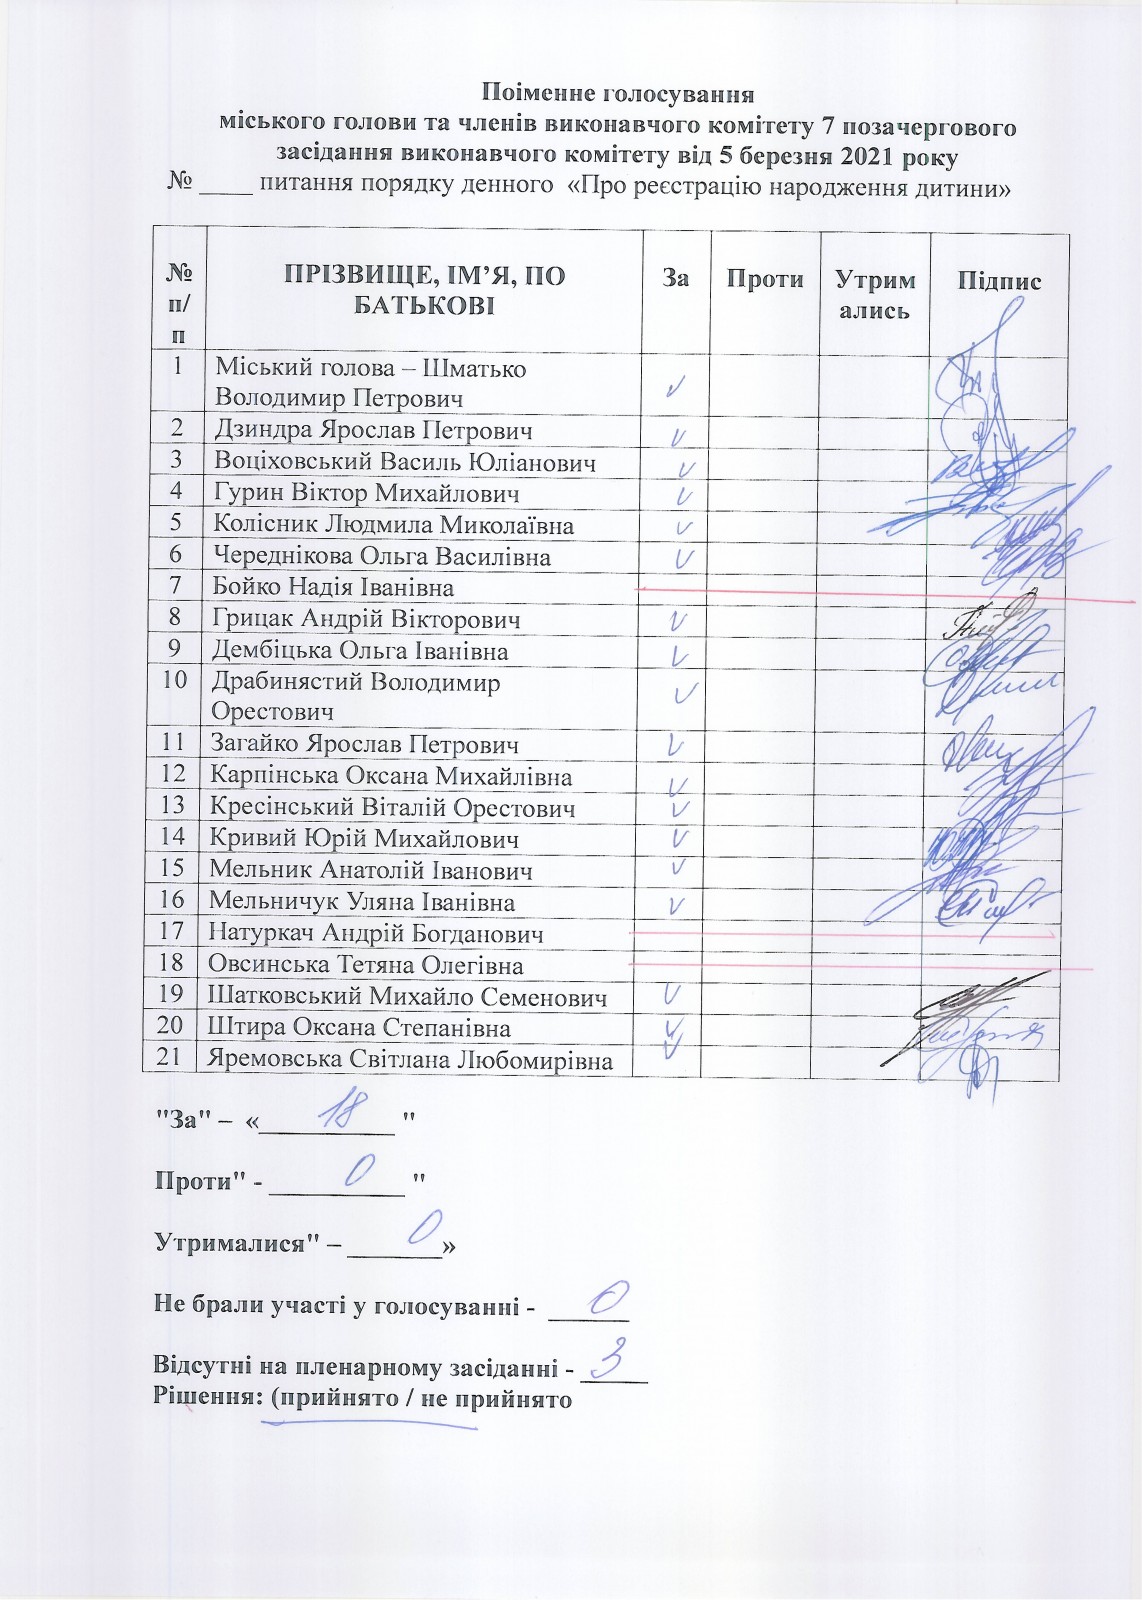 Поіменне голосування
міського голови та членів виконавчого комітету 7 позачергового
засідання виконавчого комітету від 5 березня 2021 року
№ ____ питання порядку денного «Про реєстрацію народження дитини»
№ п/п ПРІЗВИЩЕ, ІМ’Я, ПО БАТЬКОВІ За Проти Утримались Підпис
1 Міський голова – Шматько
Володимир Петрович
2 Дзиндра Ярослав Петрович
3 Воціховський Василь Юліанович
4 Гурин Віктор Михайлович
5 Колісник Людмила Миколаївна
6 Череднікова Ольга Василівна
7 Бойко Надія Іванівна
8 Грицак Андрій Вікторович
9 Дембіцька Ольга Іванівна
10 Драбинястий Володимир
Орестович
11 Загайко Ярослав Петрович
12 Карпінська Оксана Михайлівна
13 Кресінський Віталій Орестович
14 Кривий Юрій Михайлович
15 Мельник Анатолій Іванович
16 Мельничук Уляна Іванівна
17 Натуркач Андрій Богданович
18 Овсинська Тетяна Олегівна
19 Шатковський Михайло Семенович
20 Штира Оксана Степанівна
21 Яремовська Світлана Любомирівна
"За" – « 18 "
Проти" - 0 "
Утрималися" – 0 »
Не брали участі у голосуванні - 0
Відсутні на пленарному засіданні - 3
Рішення: (прийнято / не прийнято